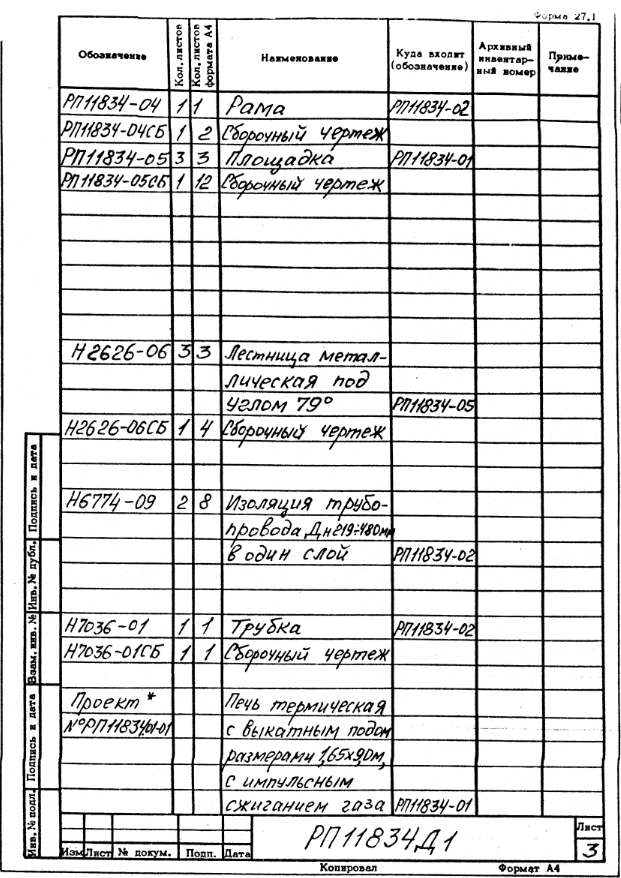 Форма 27.1
Обозначение Кол. листов Кол. листов формата А4 Наименование Куда входит (обозначение) Архивный инвентарный номер Примечание
РП11834-04 1 1 Рама РП11834-02
РП11834-04СБ 1 2 Сборочный чертеж
РП11834-05 3 3 Площадка РП11834-01
РП11834-05СБ 1 12 Сборочный чертеж
Н2626-06 3 3 Лестница метал-
лическая под
углом 79° РП11834-05
Н2626-06СБ 1 4 Сборочный чертеж
Н6774-09 2 8 Изоляция трубо-
провода Дн219-480мм
в один слой РП11834-02
Н7036-01 1 1 Трубка РП11834-02
Н7036-01СБ 1 1 Сборочный чертеж
Проект* Печь термическая
№РП11834.01-01 с выкатным подом
размерами 1,65х9,0м,
с импульсным
сжиганием газа РП11834-01
Инв. № подл. Подпись и дата Взам. инв. № Инв. № дубл. Подпись и дата
Изм Лист № докум. Подп. Дата
РП11834Д1
Лист
3
Копировал Формат А4